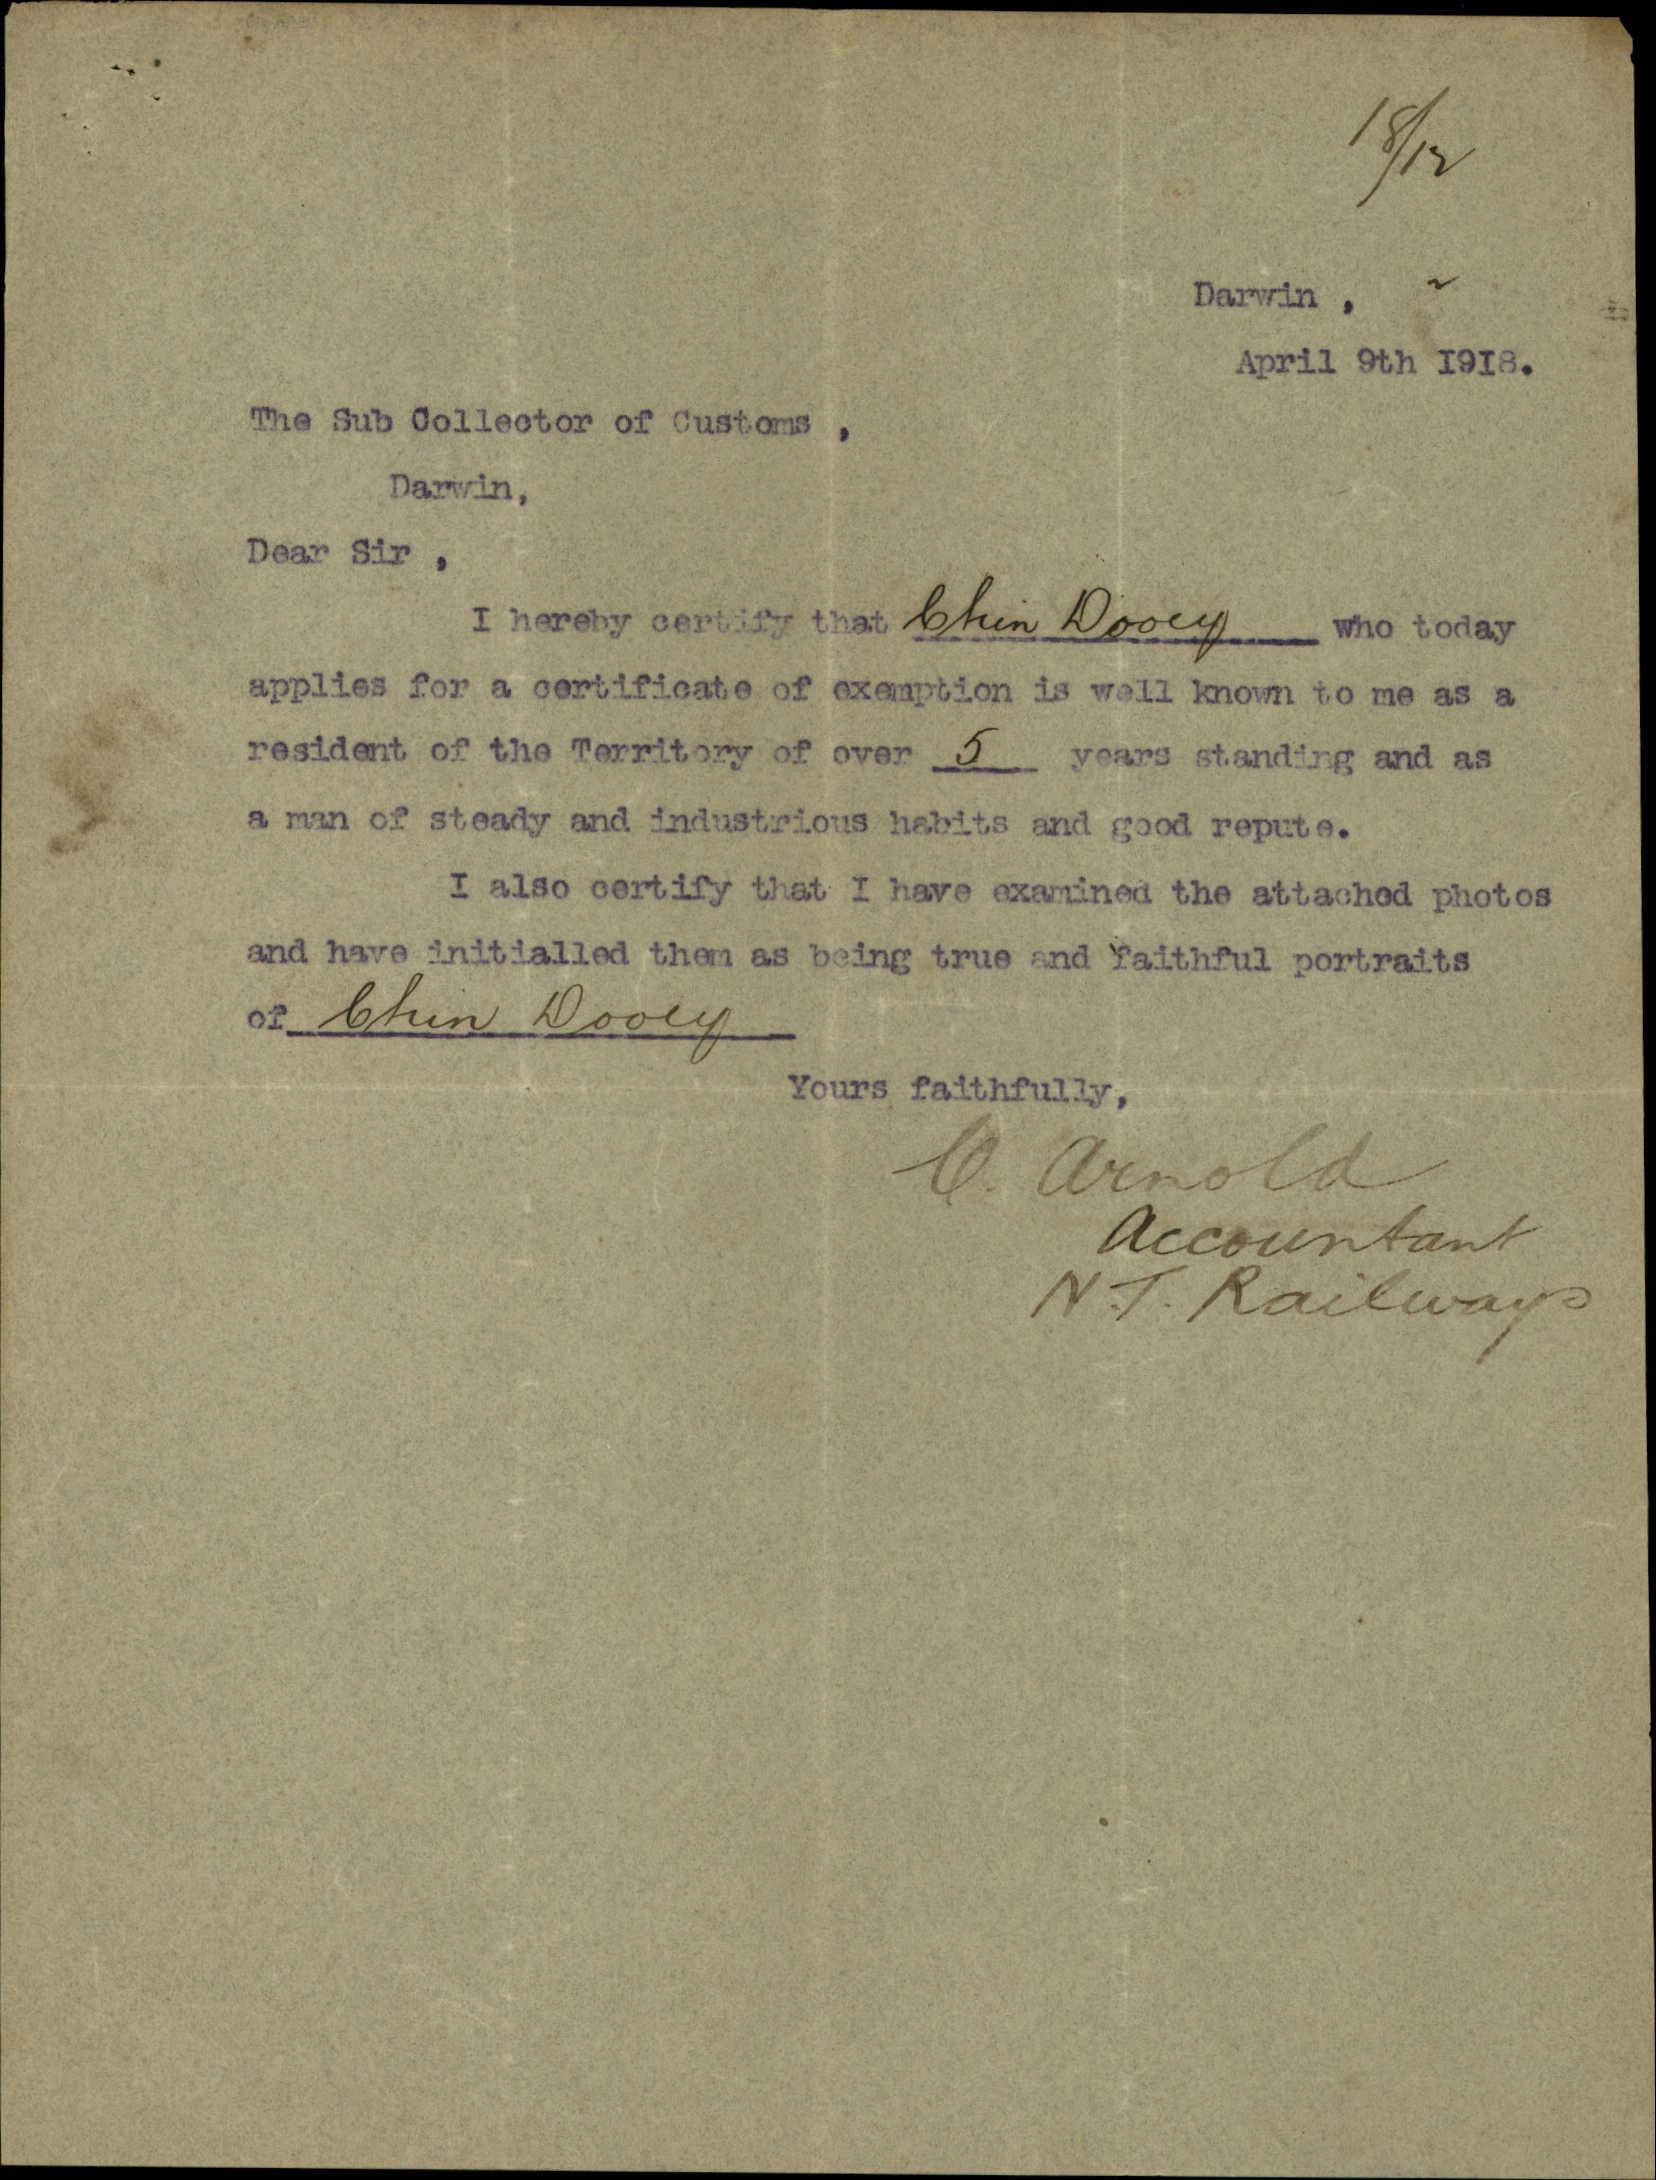 18/12
Darwin ,
April 9th I9I8.
The Sub Collector of Customs ,
Darwin,
Dear Sir ,
I hereby certify that Chin Dooey who today
applies for a certificate of exemption is well known to me as a
resident of the Territory of over 5 years standing and as
a man of steady and industrious habits and good repute.
I also certify that I have examined the attached photos
and have initialled them as being true and faithful portraits
of Chin Dooey
Yours faithfully,
C. Arnold
Accountant
N.T. Railways